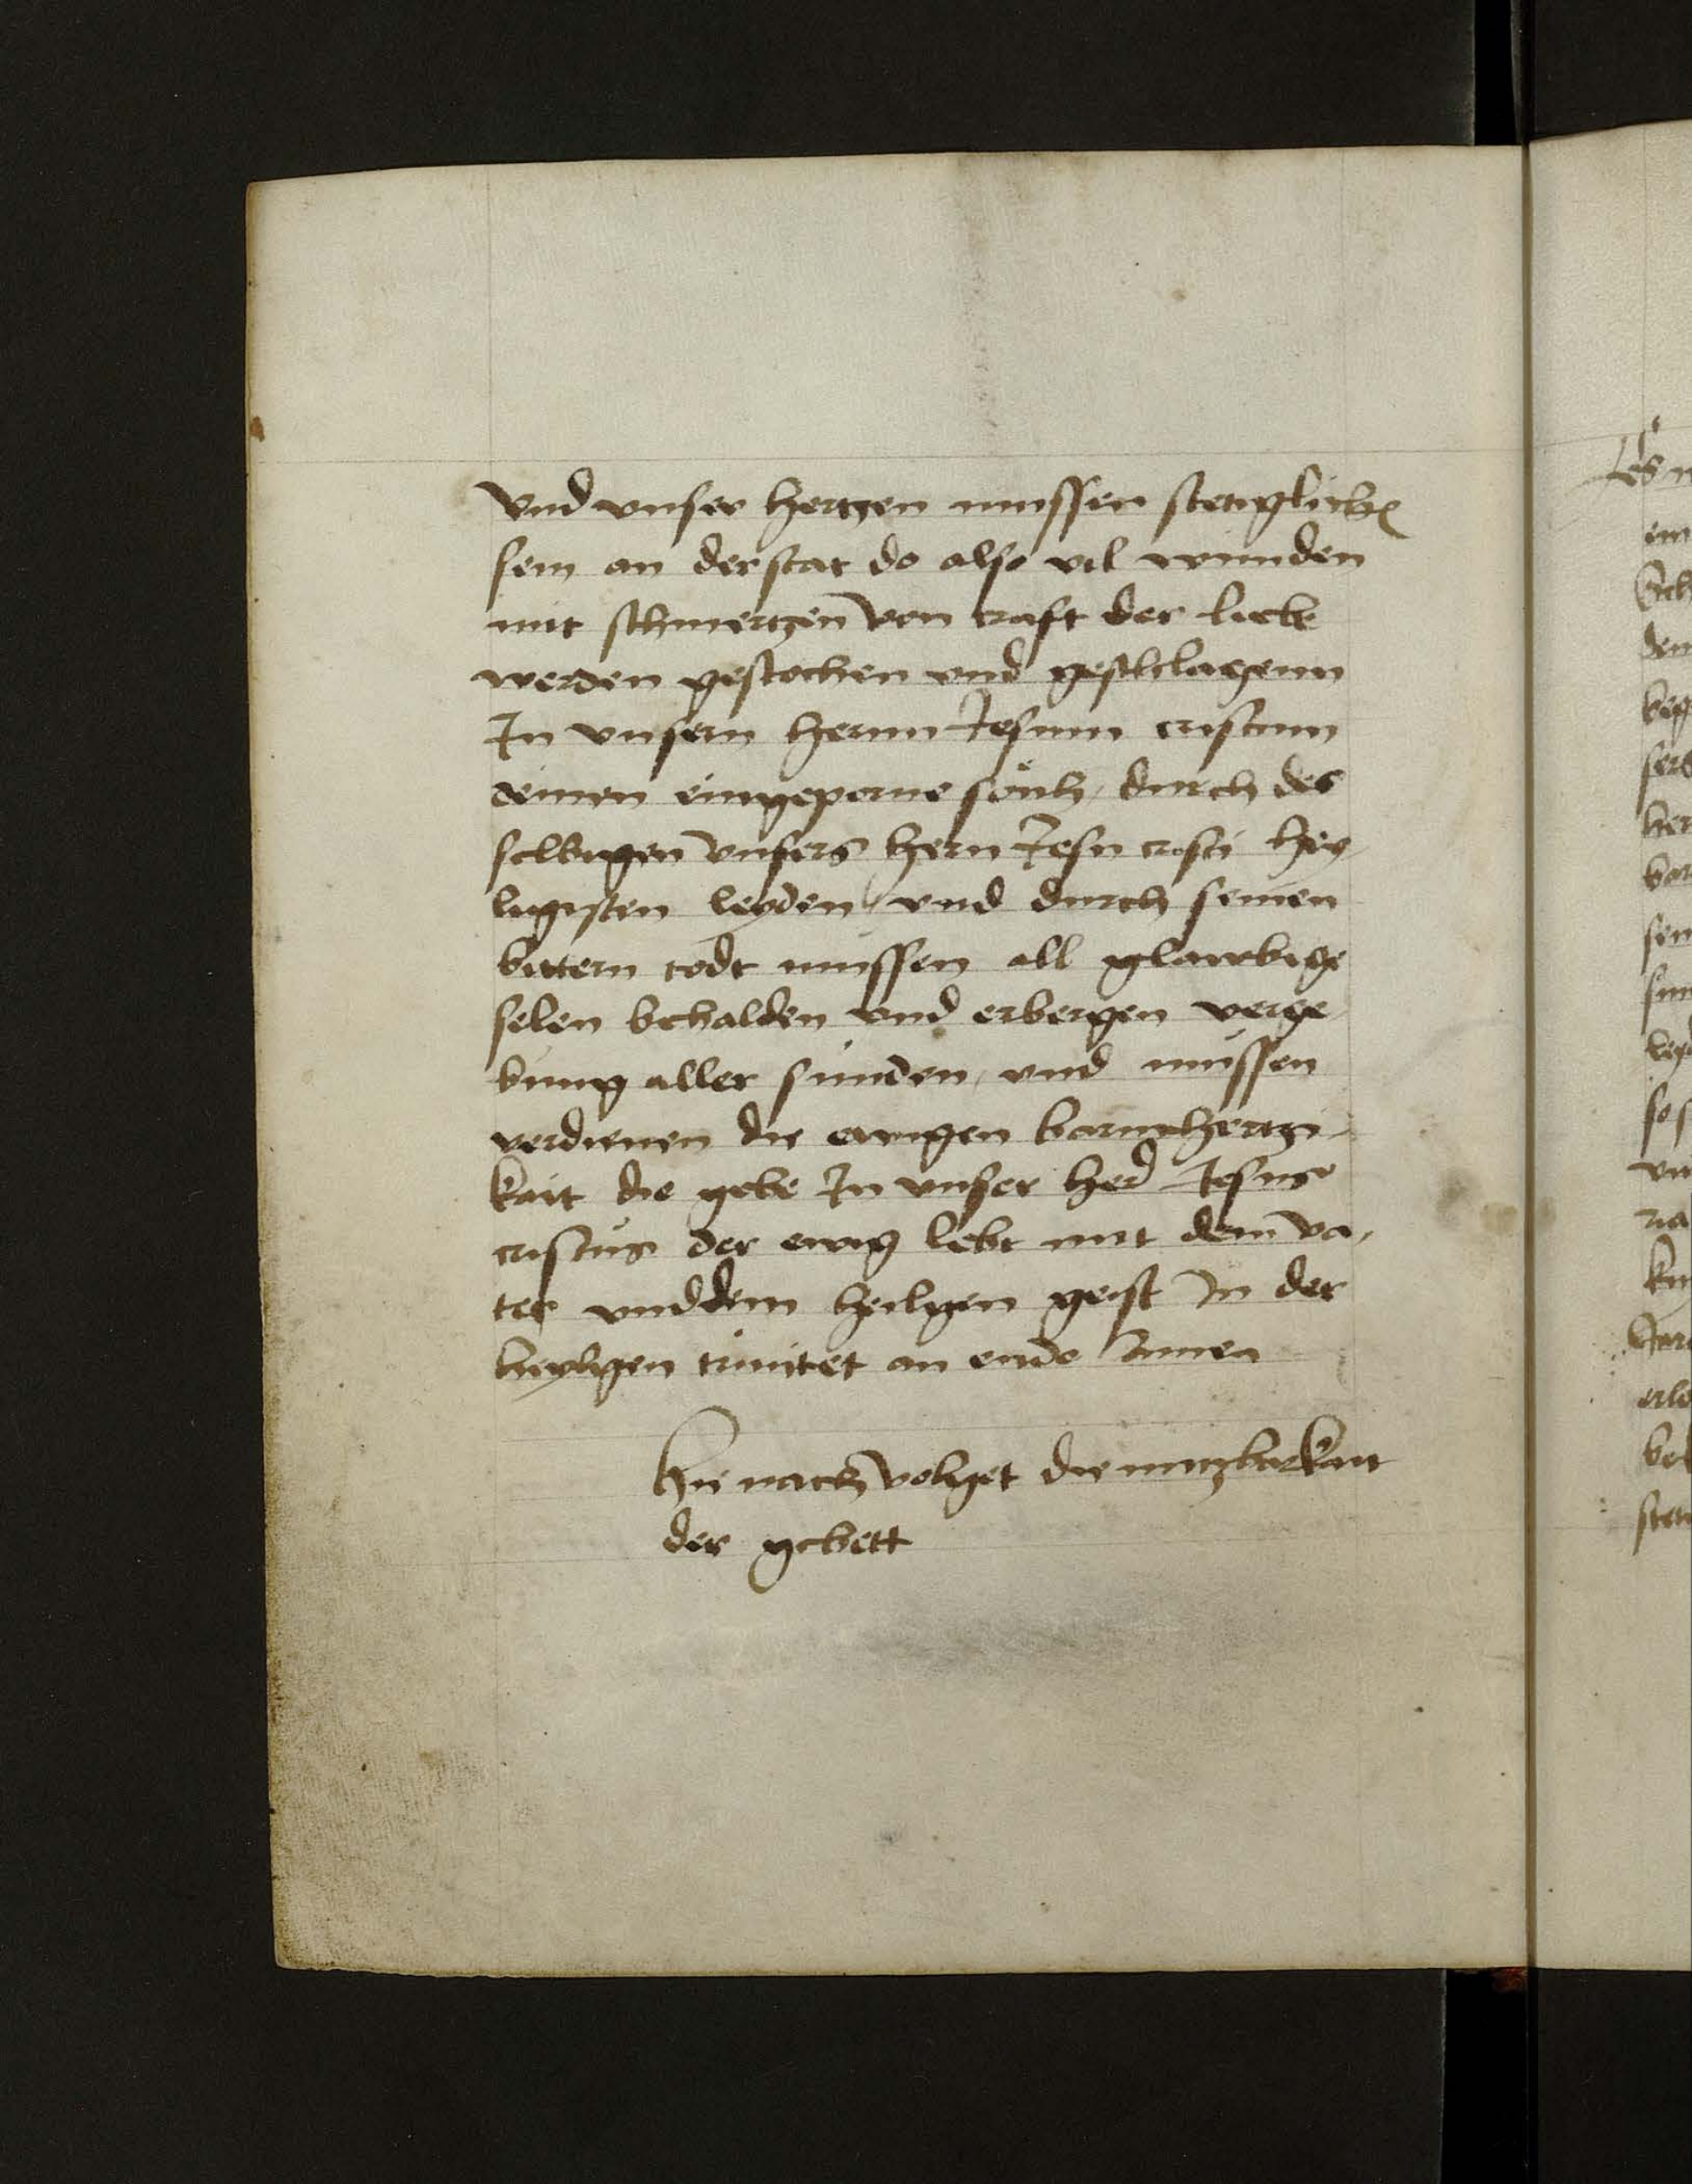 vnd vnser hertzen mussen stetiglichen
sein an der stat do also vil wunden
mit schmertzen von craft der liebe
werden gestochen vnd geschlagenn
In vnsern hernn Jesum cristum
deinen eingeporne sönh / durch des
selbigen vnsers hern Jesu cristi hey
ligisten leyden / vnd durch seinen
bittern todt mussen all glawbige
selen behalden vnd erbergen verge
bung aller sunden / vnd mussen
verdienen die ewigen barmhertzi
kait die gebe In vnser her Jesus
cristus der ewig lebt mit dem va
ter vnd dem heilgen geist In der
heyligen trinitet an ende Amen
Hie nach volget die nutzbarkait
der gebett